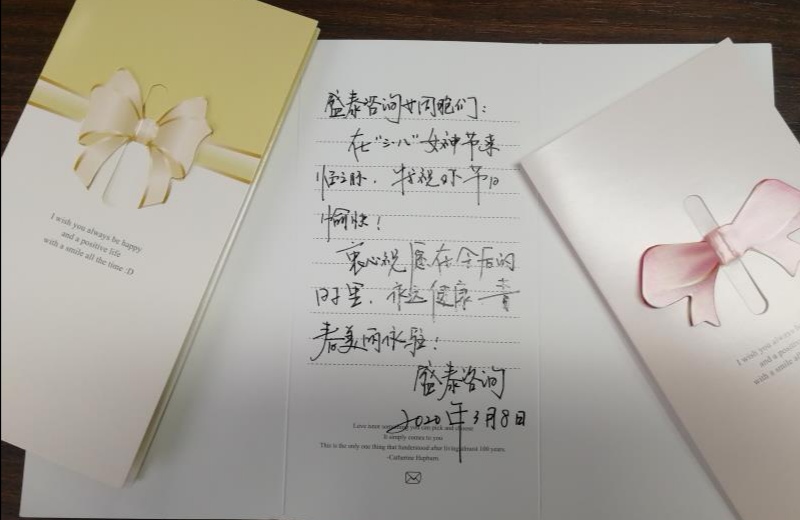 I wish you always be happy
and a positive life
with a smile all the time :D
盛泰咨询女同胞们：
在“三·八”女神节来
临之际，特祝你节日
愉快！
衷心祝愿在今后的
日子里，永远健康 青
春美丽
盛泰咨询
2020年3月8日
Love isnt something you can pick and choose
It simply comes to you
This is the only one thing that I understood after living almost 100 years.
-Catherine Hepburn
I wish you always be
and a positive
with a smile all the